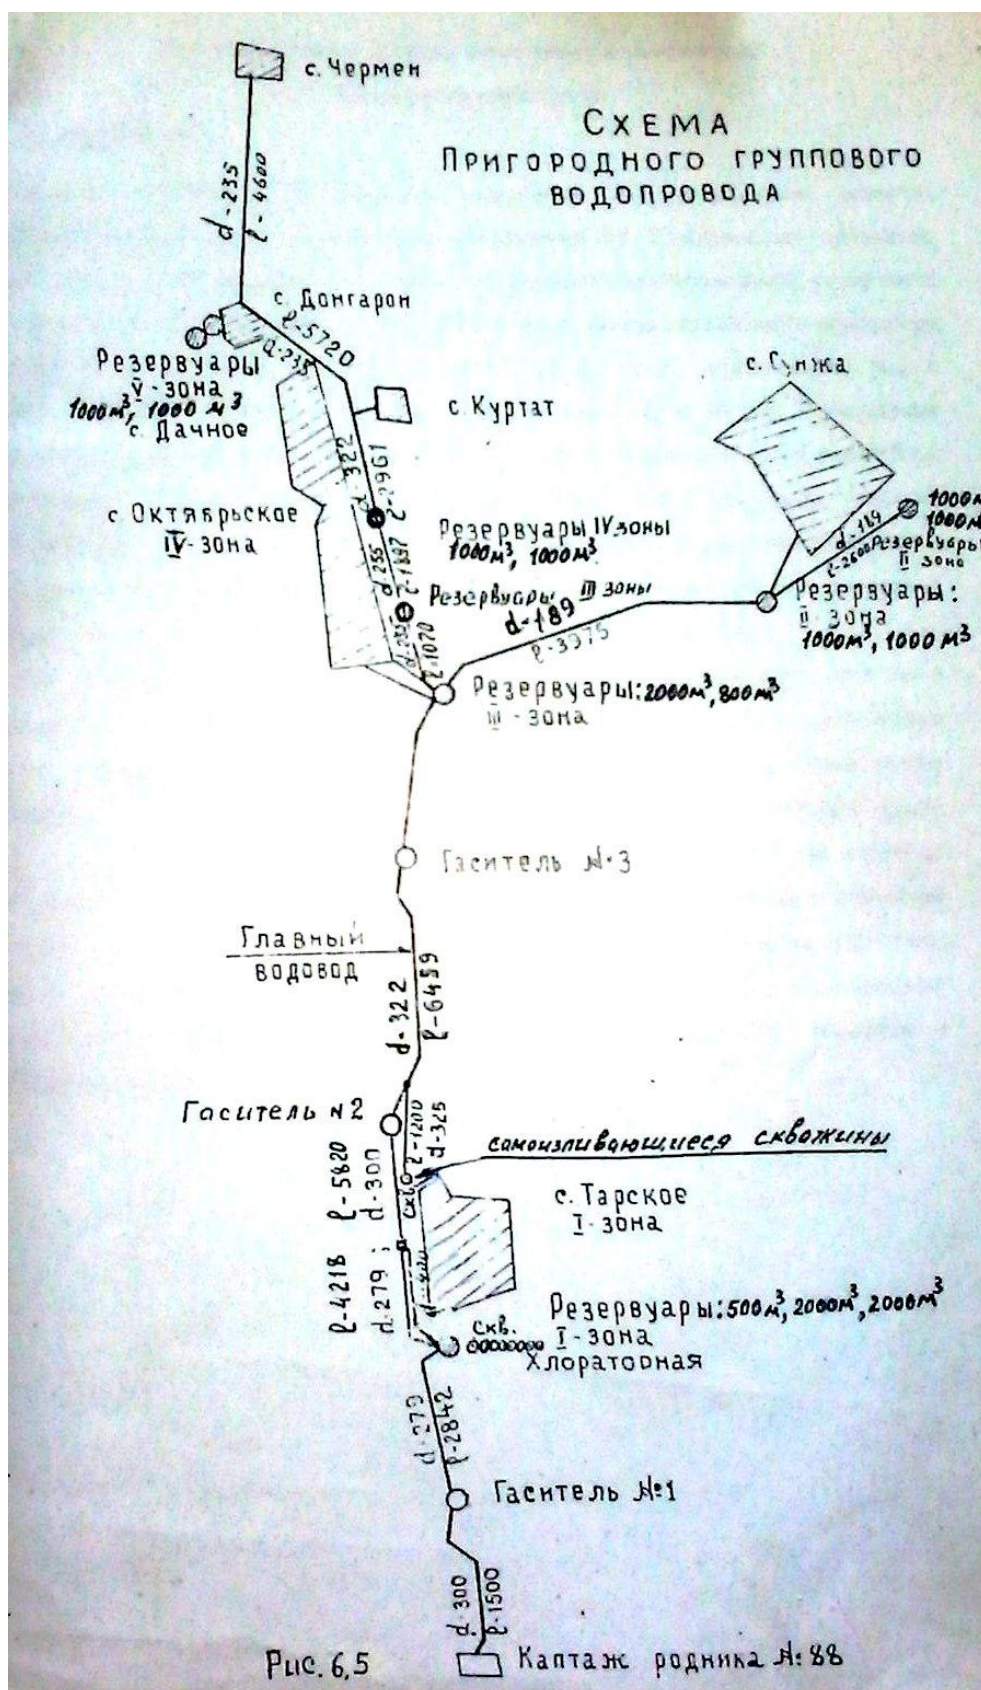 с. Чермен
СХЕМА
ПРИГОРОДНОГО ГРУППОВОГО
ВОДОПРОВОДА
d-235
ℓ-4600
с. Донгарон
ℓ-5720
d-235
Резервуары
V-зона
1000м³, 1000 м³
с. Дачное
с. Куртат
с. Сунжа
d-322
ℓ-2961
с. Октябрьское
IV-зона
Резервуары IV зоны
1000м³, 1000м³
d-255
ℓ-1897
Резервуары III зоны
ℓ-1070
1000м
1000м
d-189
ℓ-2600
Резервуары
II зона
d-189
ℓ-3975
Резервуары:
II-зона
1000м³, 1000м³
Резервуары: 2000м³, 800м³
III-зона
Гаситель №3
Главный
водовод
d-322
ℓ-6489
Гаситель N2
ℓ-1200
d-325
самоизливающиеся скважины
ℓ-5820
d-300
скв
с. Тарское
I-зона
ℓ-4218
d-279;
d-400
Резервуары: 500м³, 2000м³, 2000м³
I-зона
Скв.
Хлораторная
d-279
ℓ-2842
Гаситель №1
d-300
ℓ-1500
Рис. 6,5
Каптаж родника №88